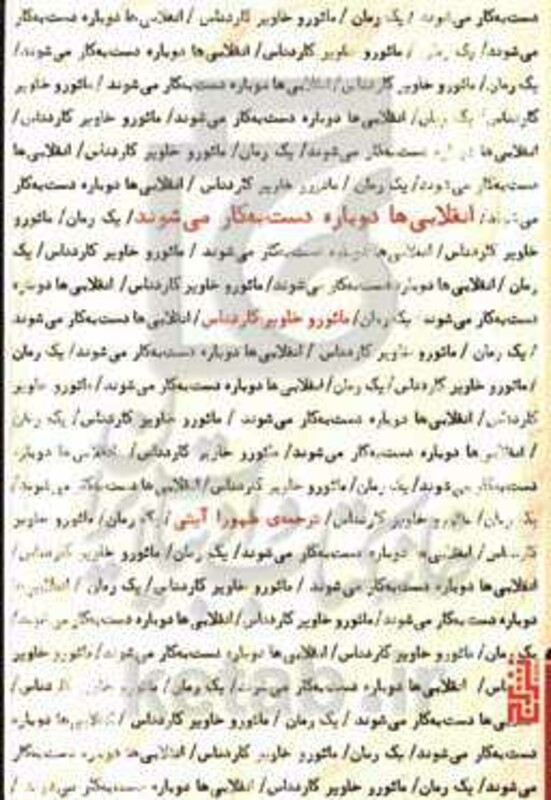 دست‌به‌کار می‌شوند / یک رمان / مائورو خاویر کاردناس / انقلابی‌ها دوباره دست‌به‌کار
می‌شوند / یک رمان / مائورو خاویر کاردناس / انقلابی‌ها دوباره دست‌به‌کار می‌شوند /
یک رمان / مائورو خاویر کاردناس / انقلابی‌ها دوباره دست‌به‌کار می‌شوند / مائورو خاویر
کاردناس / یک رمان / انقلابی‌ها دوباره دست‌به‌کار می‌شوند / مائورو خاویر کاردناس /
انقلابی‌ها دوباره دست‌به‌کار می‌شوند / یک رمان / مائورو خاویر کاردناس / انقلابی‌ها
دست‌به‌کار می‌شوند / یک رمان / مائورو خاویر کاردناس / انقلابی‌ها دوباره دست‌به‌کار
می‌شوند / انقلابی‌ها دوباره دست‌به‌کار می‌شوند / یک رمان / مائورو
خاویر کاردناس / انقلابی‌ها دوباره دست‌به‌کار می‌شوند / مائورو خاویر کاردناس / یک
رمان / انقلابی‌ها دوباره دست‌به‌کار می‌شوند / مائورو خاویر کاردناس / انقلابی‌ها دوباره
دست‌به‌کار می‌شوند / یک رمان / مائورو خاویر کاردناس / انقلابی‌ها دست‌به‌کار می‌شوند
/ یک رمان / مائورو خاویر کاردناس / انقلابی‌ها دوباره دست‌به‌کار می‌شوند / یک رمان
/ مائورو خاویر کاردناس / یک رمان / انقلابی‌ها دوباره دست‌به‌کار می‌شوند / مائورو خاویر
کاردناس / انقلابی‌ها دوباره دست‌به‌کار می‌شوند / مائورو خاویر کاردناس / یک رمان
/ انقلابی‌ها دوباره دست‌به‌کار می‌شوند / مائورو خاویر کاردناس / انقلابی‌ها دوباره
دست‌به‌کار می‌شوند / یک رمان / مائورو خاویر کاردناس / انقلابی‌ها دست‌به‌کار می‌شوند /
یک رمان / مائورو خاویر کاردناس / ترجمه‌ی طهورا آیتی / یک رمان / مائورو خاویر
کاردناس / انقلابی‌ها دوباره دست‌به‌کار می‌شوند / یک رمان / مائورو خاویر کاردناس /
انقلابی‌ها دوباره دست‌به‌کار می‌شوند / مائورو خاویر کاردناس / یک رمان / انقلابی‌ها
دوباره دست‌به‌کار می‌شوند / مائورو خاویر کاردناس / انقلابی‌ها دوباره دست‌به‌کار می‌شوند /
یک رمان / مائورو خاویر کاردناس / انقلابی‌ها دوباره دست‌به‌کار می‌شوند / مائورو خاویر
کاردناس / انقلابی‌ها دوباره دست‌به‌کار می‌شوند / یک رمان / مائورو خاویر کاردناس /
انقلابی‌ها دست‌به‌کار می‌شوند / یک رمان / مائورو خاویر کاردناس / انقلابی‌ها دوباره
دست‌به‌کار می‌شوند / یک رمان / مائورو خاویر کاردناس / انقلابی‌ها دوباره دست‌به‌کار
می‌شوند / یک رمان / مائورو خاویر کاردناس / انقلابی‌ها دوباره دست‌به‌کار می‌شوند /
ketab.ir